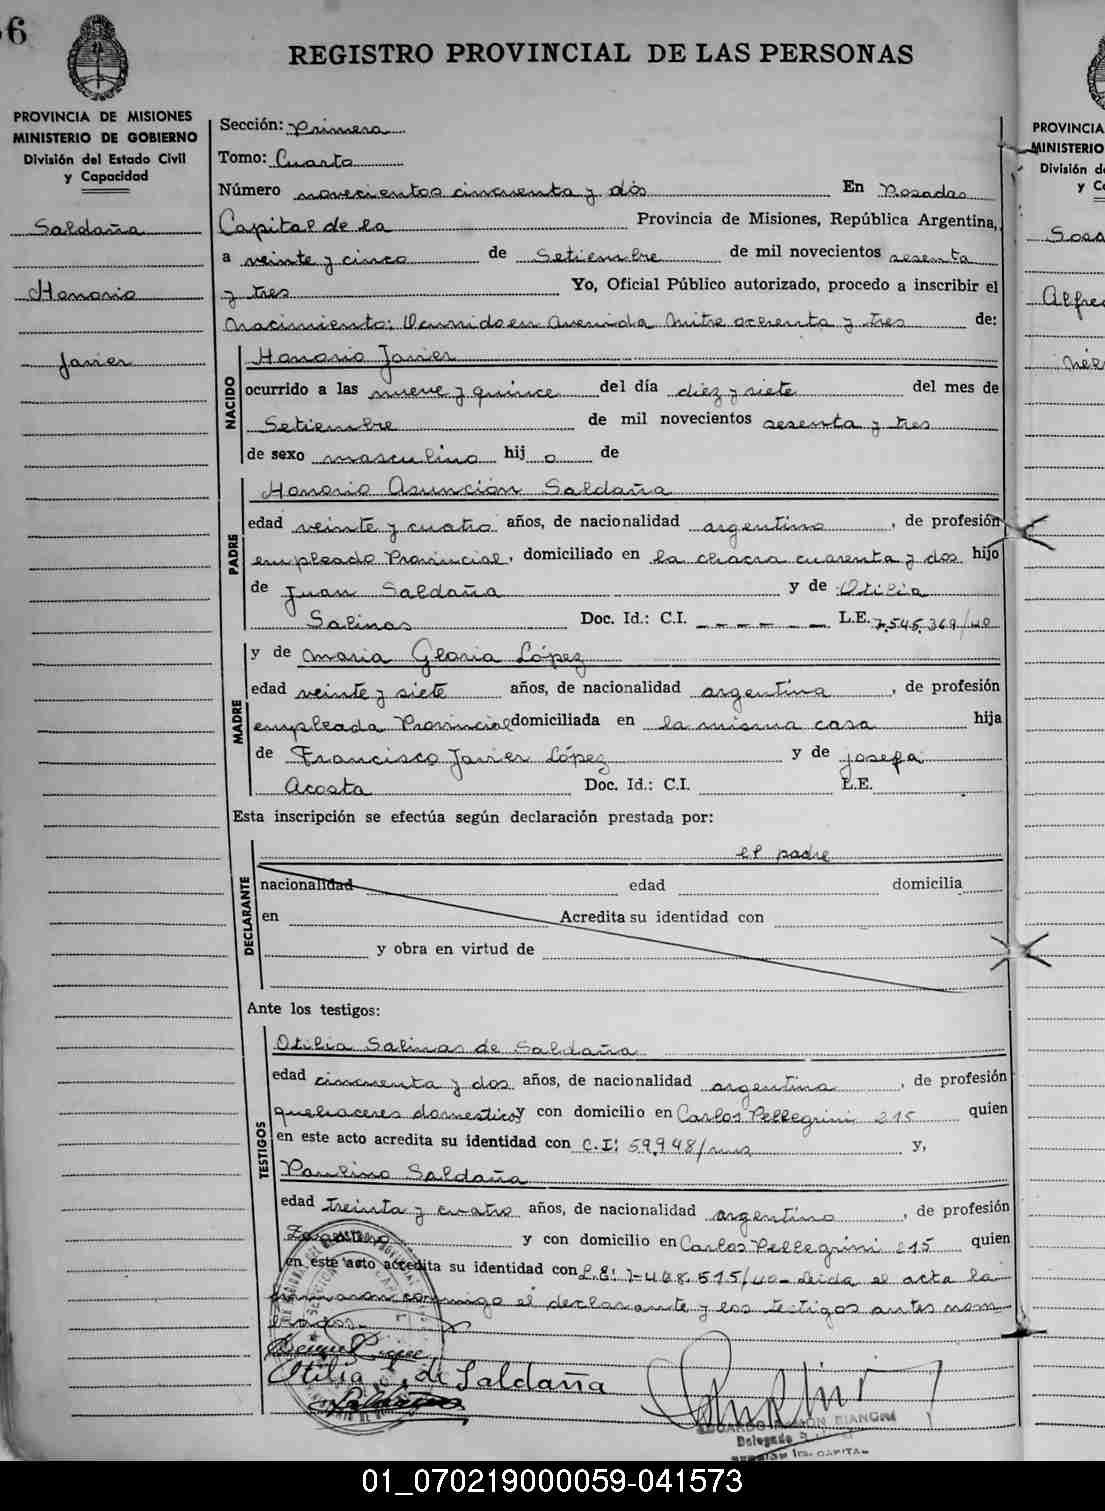 56
REGISTRO PROVINCIAL DE LAS PERSONAS
PROVINCIA DE MISIONES
MINISTERIO DE GOBIERNO
División del Estado Civil
y Capacidad
Saldaña
Honorio
Javier
Sección: Primera
Tomo: Cuarto
Número novecientos cincuenta y dós En Posadas
Capital de la Provincia de Misiones, República Argentina,
a veinte y cinco de Setiembre de mil novecientos sesenta
y tres Yo, Oficial Público autorizado, procedo a inscribir el
nacimiento: Ocurrido en Avenida Mitre ochenta y tres de:
NACIDO
Honorio Javier
ocurrido a las nueve y quince del día diéz y siete del mes de
Setiembre de mil novecientos sesenta y tres
de sexo masculino hij o de
PADRE
Honorio Asunción Saldaña
edad veinte y cuatro años, de nacionalidad argentino, de profesión
empleado Provincial, domiciliado en la chacra cuarenta y dos hijo
de Juan Saldaña y de Otilia
Salinas Doc. Id.: C.I. – – – – – – L.E. 7.545.369/40
MADRE
y de Maria Gloria López
edad veinte y siete años, de nacionalidad argentina, de profesión
empleada Provincial domiciliada en la misma casa hija
de Francisco Javier López y de Josefa
Acosta Doc. Id.: C.I. L.E.
Esta inscripción se efectúa según declaración prestada por:
DECLARANTE
el padre
nacionalidad edad domicilia
en Acredita su identidad con
y obra en virtud de
Ante los testigos:
TESTIGOS
Otilia Salinas de Saldaña
edad cincuenta y dos años, de nacionalidad argentina, de profesión
quehaceres domesticos y con domicilio en Carlos Pellegrini 215 quien
en este acto acredita su identidad con C.I: 59.948/mnes y,
Paulino Saldaña
edad treinta y cuatro años, de nacionalidad argentino, de profesión
Zapatero y con domicilio en Carlos Pellegrini 215 quien
en este acto acredita su identidad con L.E: 7-468.515/40- Leida el acta la
firmaron conmigo el declarante y los testigos antes nom
brados.-
Otilia S. de Saldaña
Saldaña
EDUARDO RAMÓN BIANCHI
Delegado
CAPITAL
PROVINCIA
MINISTERIO
División d
y C
Sosa
Alfre
Nés
01_070219000059-041573